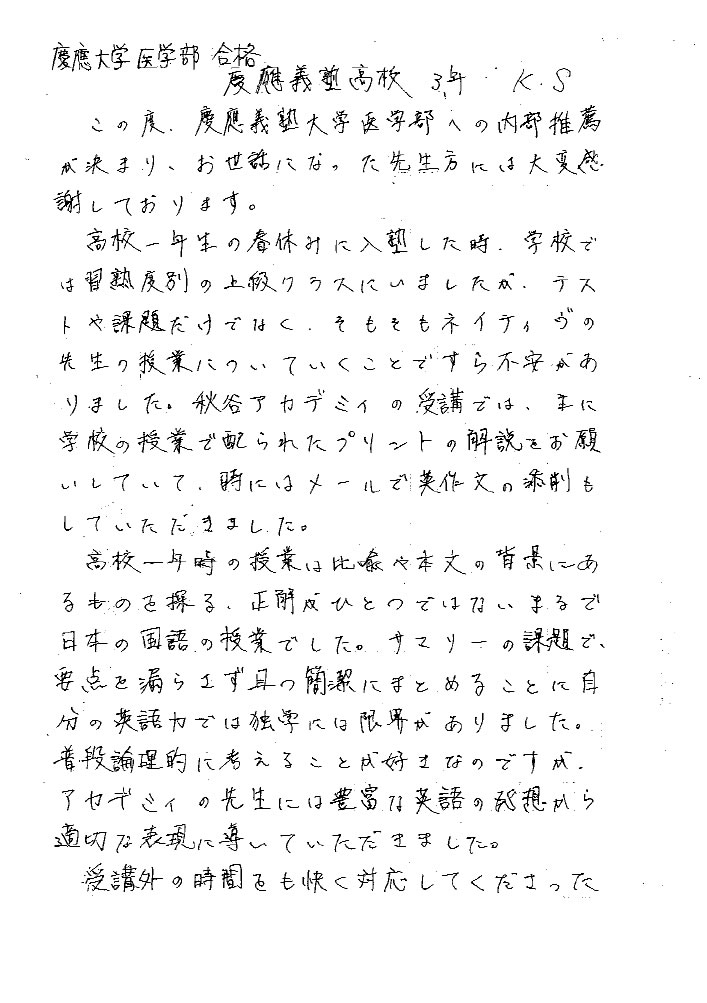 慶應大学医学部 合格
慶應義塾高校 3年 K.S
この度、慶應義塾大学医学部への内部推薦
が決まり、お世話になった先生方には大変感
謝しております。
高校一年生の春休みに入塾した時、学校で
は習熟度別の上級クラスにいましたが、テス
トや課題だけでなく、そもそもネイティヴの
先生の授業についていくことですら不安があ
りました。秋谷アカデミィの受講では、主に
学校の授業で配られたプリントの解説をお願
いしていて、時にはメールで英作文の添削も
していただきました。
高校一年時の授業は比喩や本文の背景にあ
るものを探る、正解がひとつではないまるで
日本の国語の授業でした。サマリーの課題で、
要点を漏らさず且つ簡潔にまとめることに自
分の英語力では独学には限界がありました。
普段論理的に考えることが好きなのですが、
アカデミィの先生には豊富な英語の発想から
適切な表現に導いていただきました。
受講外の時間をも快く対応してくださった